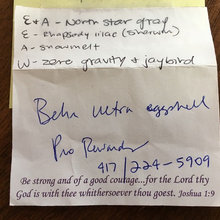 E & A - North star gray
E - Rhapsody lilac (Sherwin)
A - snowmelt
W - zero gravity & jaybird
Behr Ultra eggshell
Pro Rewards
417/224-5909
Be strong and of a good courage...for the Lord thy
God is with thee whithersoever thou goest. Joshua 1:9